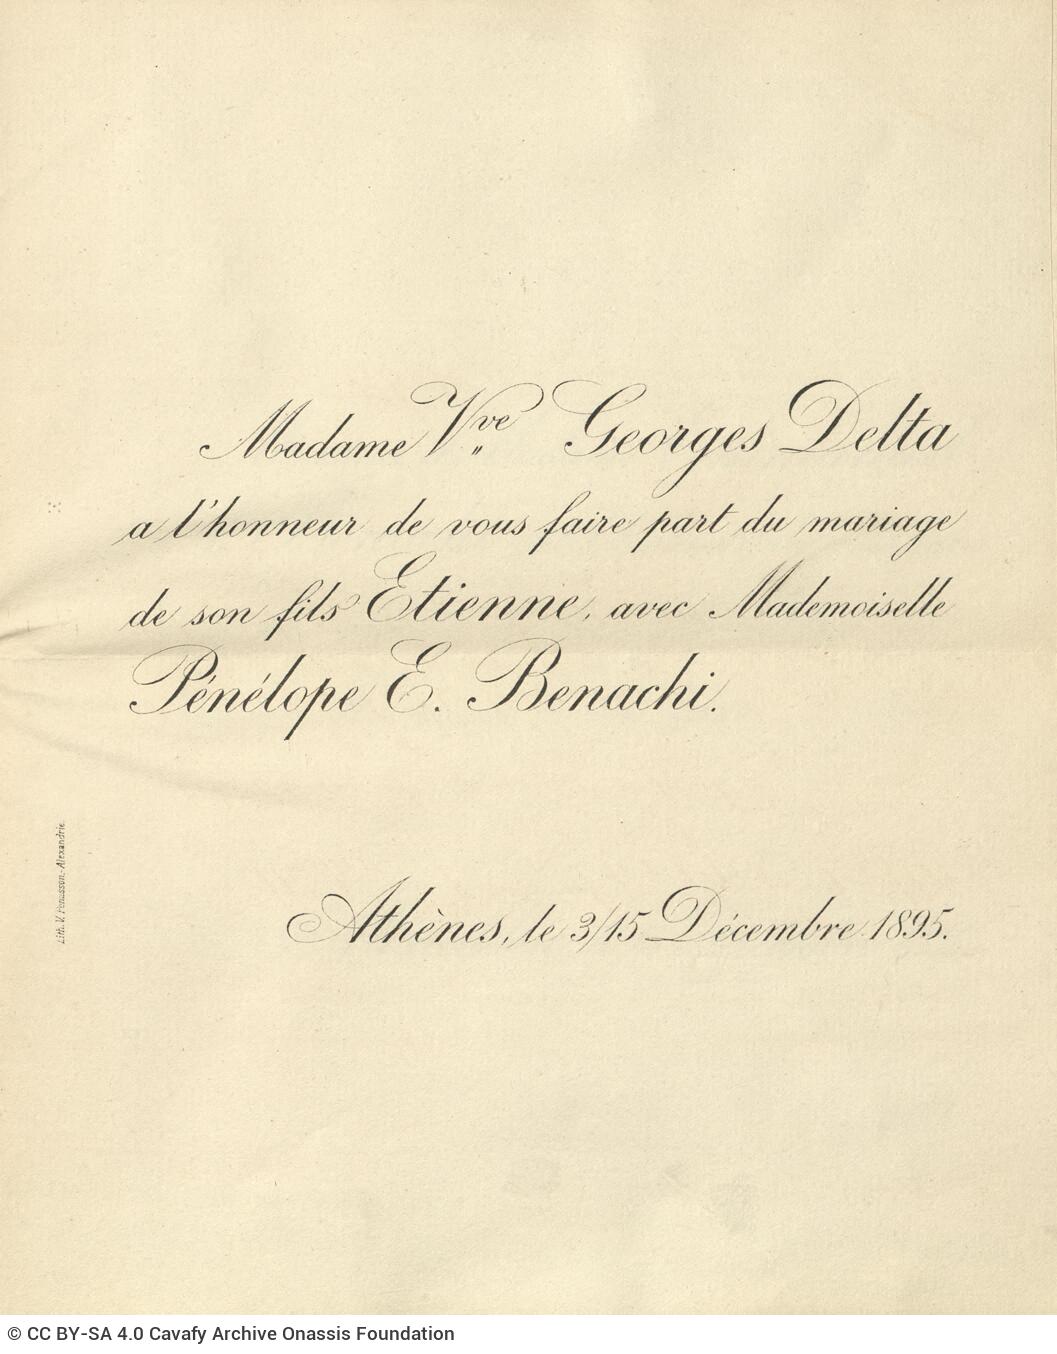 Madame Vve Georges Delta
a l'honneur de vous faire part du mariage
de son fils Etienne, avec Mademoiselle
Pénélope E. Benachi.
Athènes, le 3/15 Décembre 1895.
Lith. V. Penasson.-Alexandrie.
© CC BY-SA 4.0 Cavafy Archive Onassis Foundation